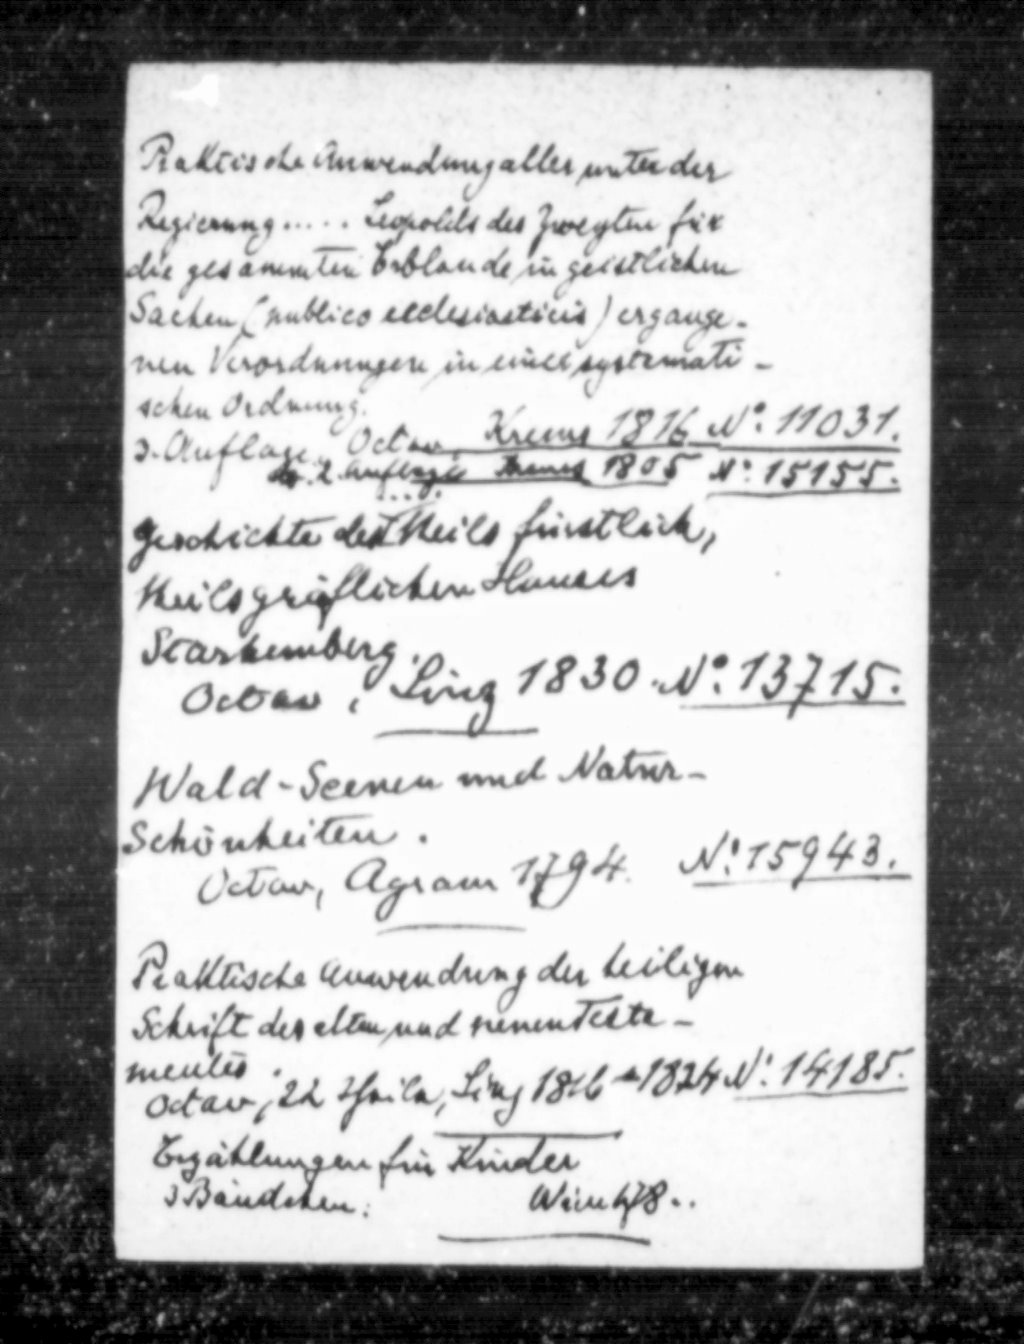 Praktische Anwendung aller unter der
Regierung..... Leopolds des Zweyten für
die gesammten Erblande in geistlichen
Sachen (publico ecclesiasticis) ergange-
nen Verordnungen in einer systemati-
schen Ordnung.
3. Auflage, Octav Krems 1816 No. 11031.
2. Auflage Krems 1805 No. 15155.
Geschichte des theils fürstlich,
theils gräflichen Hauses
Starhemberg.
Octav, Linz 1830. No. 13715.
Wald-Scenen und Natur-
Schönheiten.
Octav, Agram 1794. No. 15943.
Praktische Anwendung der heiligen
Schrift des alten und neuen Testa-
mentes.
Octav, 22 Theile, Linz 1816-1824 No. 14185.
Erzählungen für Kinder
3 Bändchen. Wien 178..